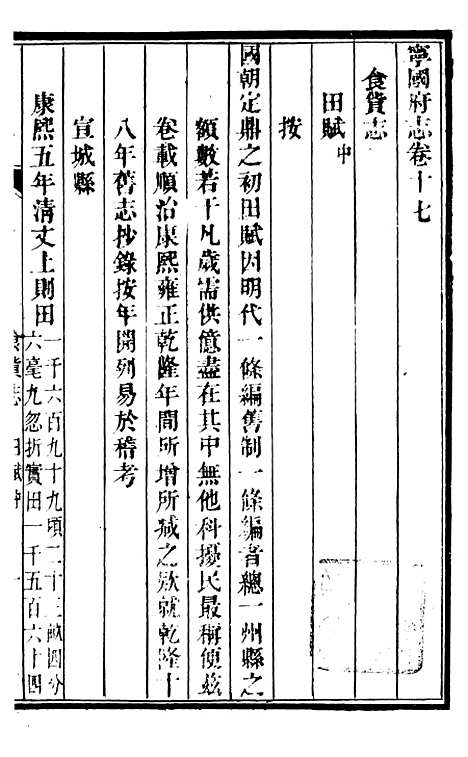 寧國府志卷十七
食貨志
田賦中
按
國朝定鼎之初田賦因明代一條編舊制一條編者總一州縣之
額數若干凡歲需供億盡在其中無他科擾民最稱便茲
卷載順治康熙雍正乾隆年間所增所減之欵就乾隆十
八年舊志抄錄按年開列易於稽考
宣城縣
康熙五年清丈上則田一千六百九十九頃二十三畝四分
六毫九忽折實田一千五百六十四
食貨志 田賦中 一